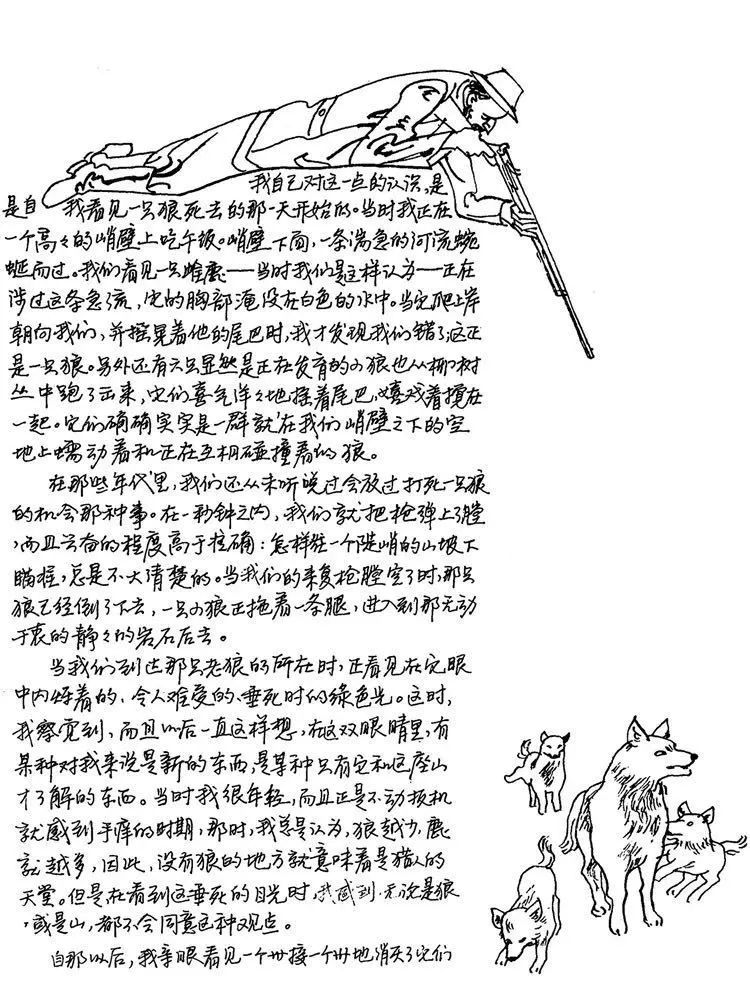 我自己对这一点的认识,是
是自 我看见一只狼死去的那一天开始的。当时我正在
一个高々的峭壁上吃午饭。峭壁下面,一条湍急的河流蜿
蜒而过。我们看见一只雌鹿——当时我们是这样认为——正在
涉过这条急流,它的胸部淹没在白色的水中。当它爬上岸
朝向我们,并摇晃着他的尾巴时,我才发现我们错了,这正
是一只狼。另外还有六只显然是正在发育的小狼也从柳树
丛中跑了出来,它们喜气洋々地摇着尾巴,嬉戏着搅在
一起。它们确确实实是一群就在我们峭壁之下的空
地上蠕动着和正在互相碰撞着的狼。
在那些年代里,我们还从未听说过会放过打死一只狼
的机会那种事。在一秒钟之内,我们就把枪弹上了膛
,而且兴奋的程度高于准确:怎样往一个陡峭的山坡下
瞄准,总是不大清楚的。当我们的来复枪膛空了时,那只
狼已经倒了下去,一只小狼正拖着一条腿,进入到那无动
于衷的静々的岩石后去。
当我们到达那只老狼的所在时,正看见在它眼
中闪烁着的、令人难受的、垂死时的绿色光。这时,
我察觉到,而且以后一直这样想,在这双眼睛里,有
某种对我来说是新的东西,是某种只有它和这座山
才了解的东西。当时我很年轻,而且正是不动扳机
就感到手痒的时期,那时,我总是认为,狼越少,鹿
就越多,因此,没有狼的地方就意味着是猎人的
天堂。但是在看到这垂死的目光时,我感到,无论是狼
,或是山,都不会同意这种观点。
自那以后,我亲眼看见一个州接一个州地消灭了它们